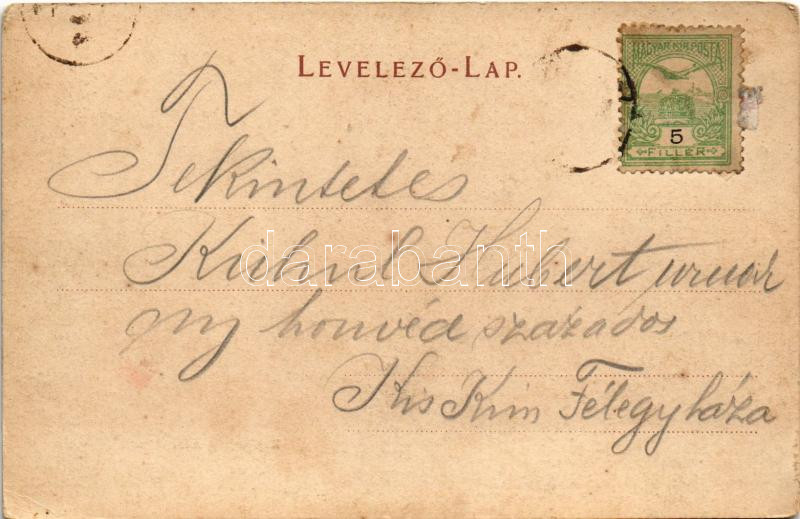 LEVELEZŐ-LAP.
MAGYAR KIR. POSTA
5
FILLÉR
Tekintetes
Kuhnl Hubert urnak
ny honvéd százados
Kis Kun Félegyháza
darabanth